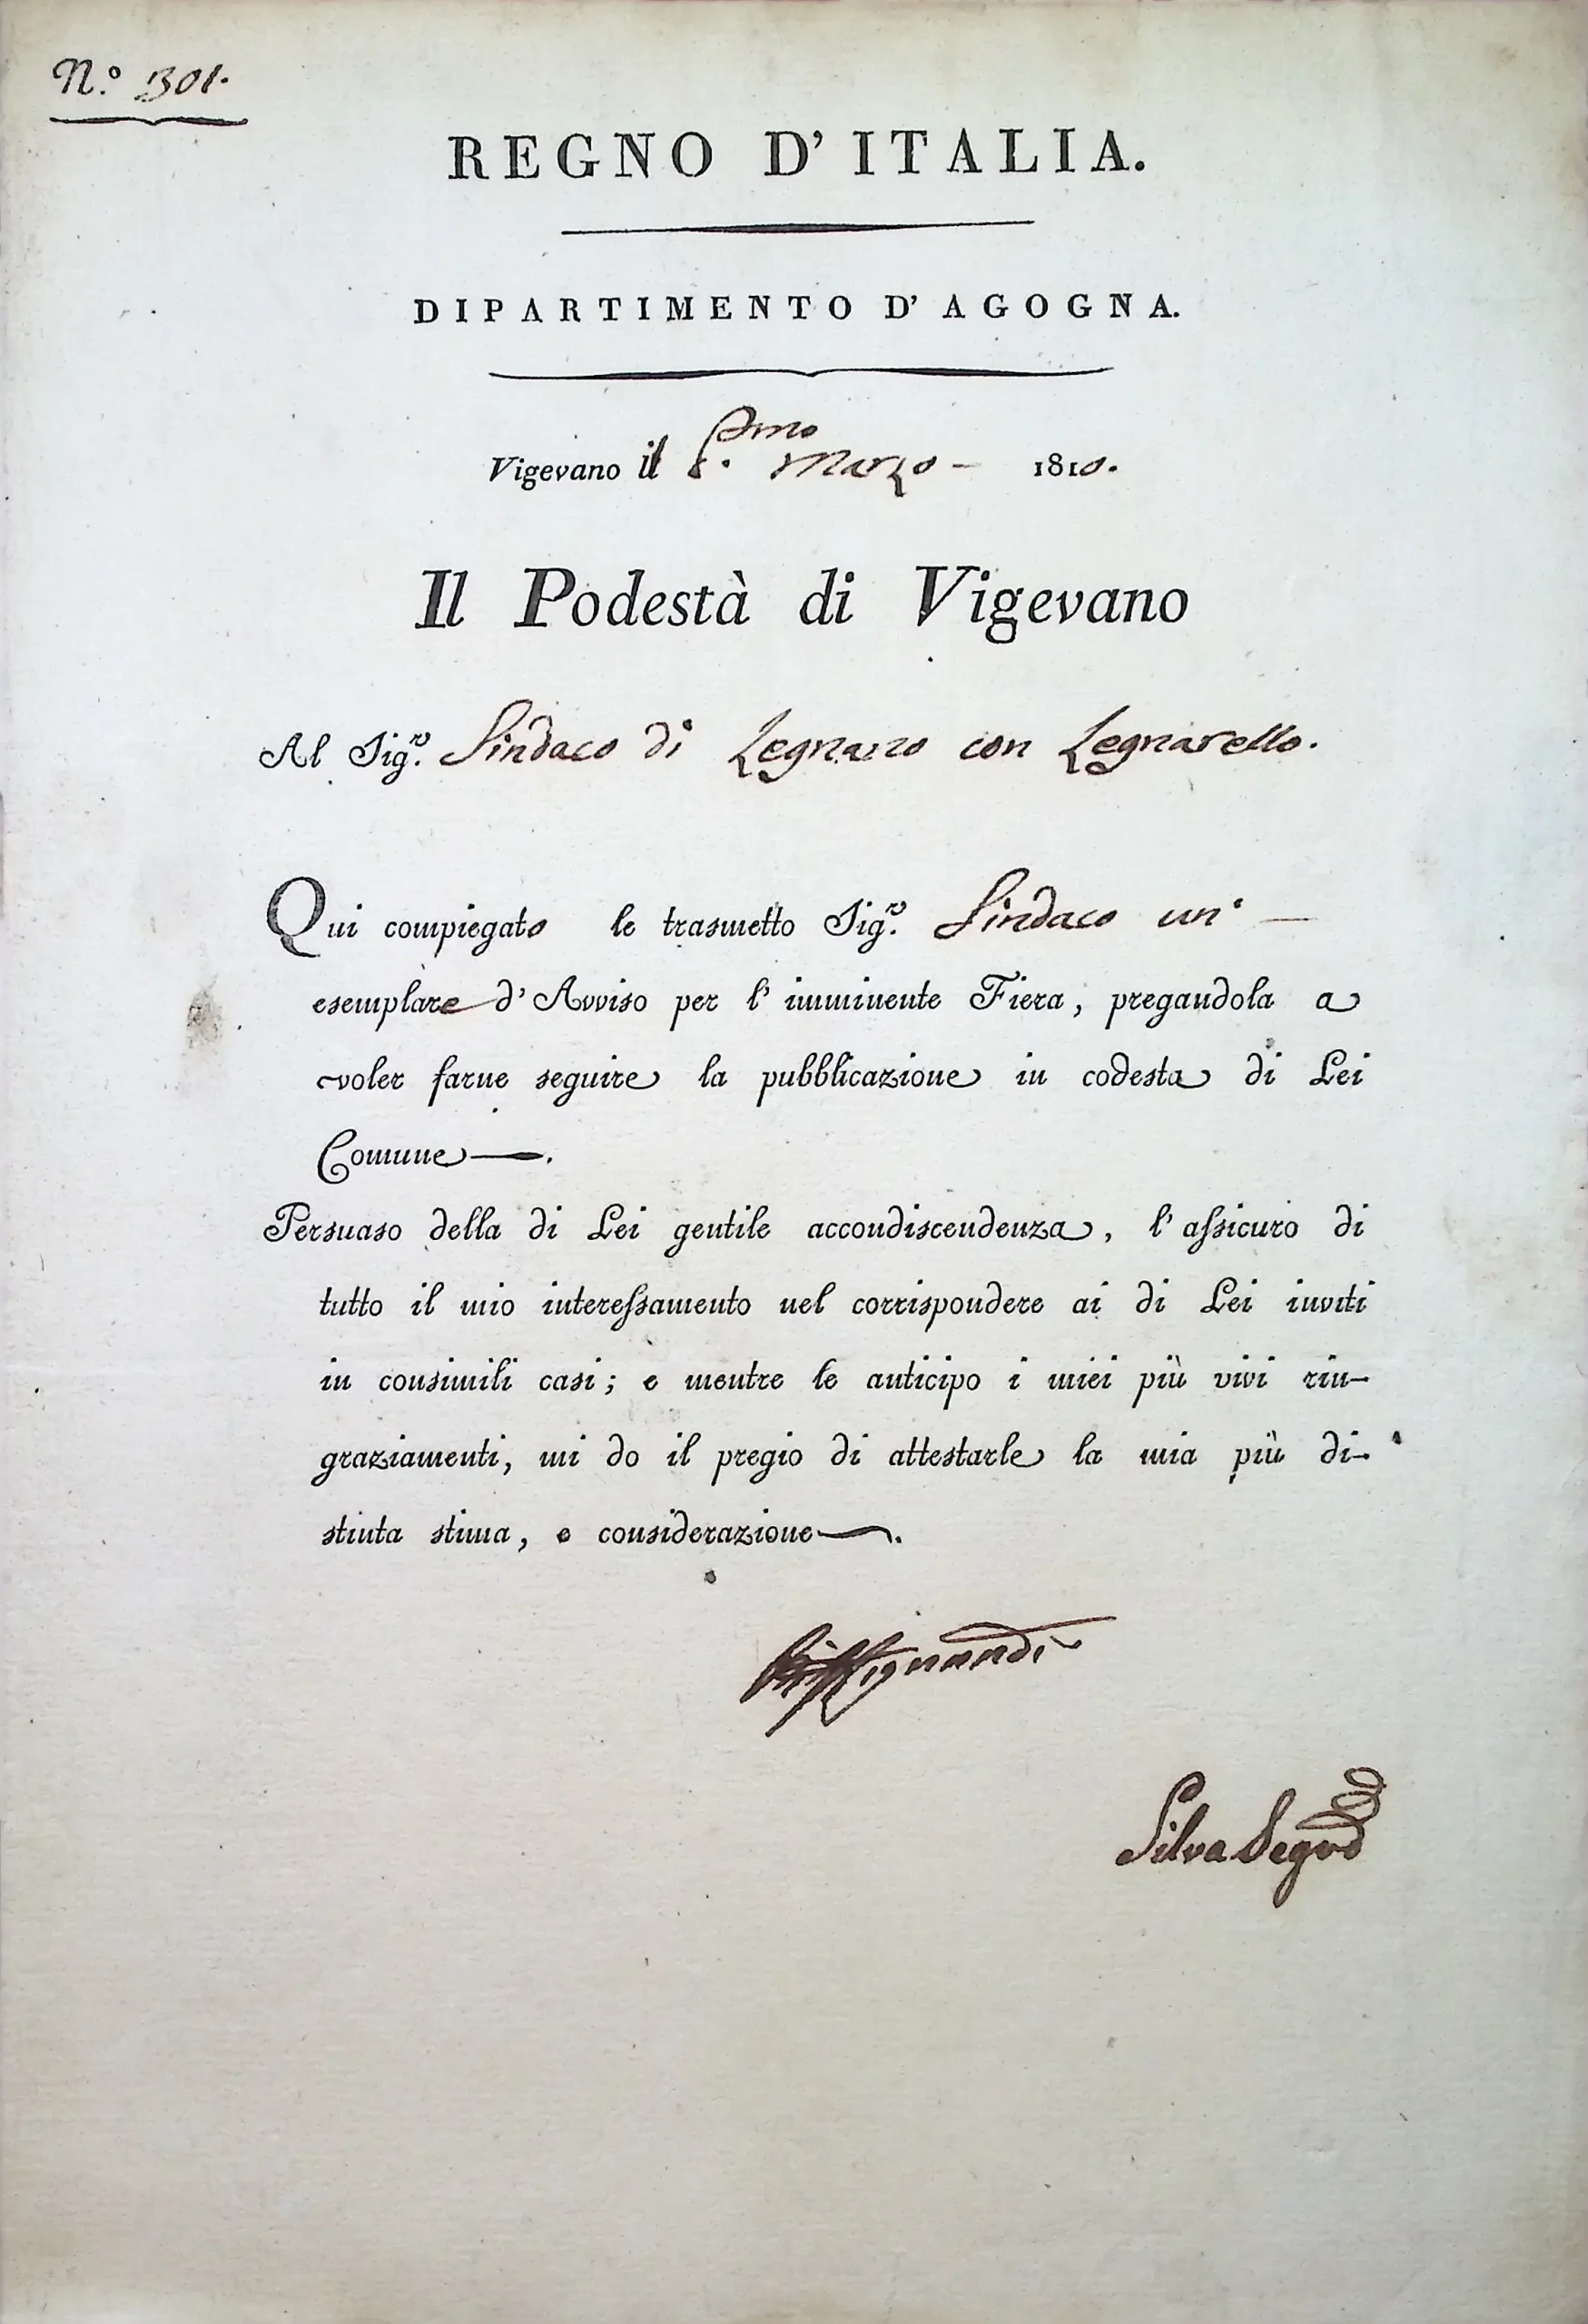 N.º 301.
REGNO D'ITALIA.
DIPARTIMENTO D'AGOGNA.
Vigevano il Marzo - 1810.
Il Podestà di Vigevano
Al Sig.r Sindaco di Legnano con Legnarello.
Qui compiegato le trasmetto Sig.r Sindaco un'
esemplare d'Avviso per l'imminente Fiera, pregandola a
voler farne seguire la pubblicazione in codesta di Lei
Comune.
Persuaso della di Lei gentile accondiscendenza, l'assicuro di
tutto il mio interessamento nel corrispondere ai di Lei inviti
in consimili casi; e mentre le anticipo i miei più vivi rin-
graziamenti, mi do il pregio di attestarle la mia più di-
stinta stima, e considerazione.
Silva Segr.o